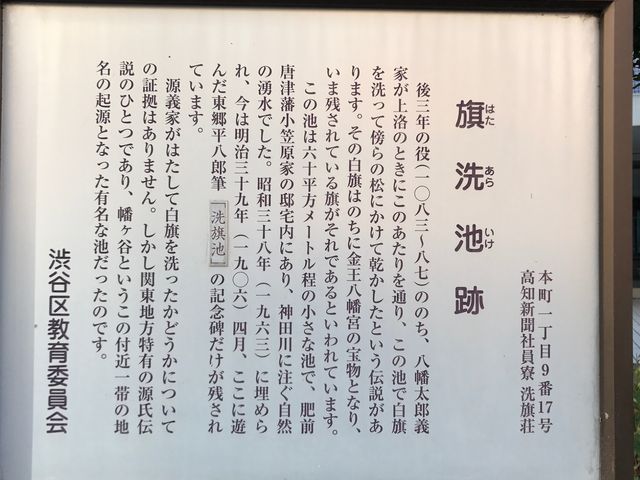 本町一丁目9番17号
高知新聞社員寮 洗旗荘
旗洗池跡
はた あら いけ
後三年の役(一〇八三〜八七)ののち、八幡太郎義
家が上洛のときにこのあたりを通り、この池で白旗
を洗って傍らの松にかけて乾かしたという伝説があ
ります。その白旗はのちに金王八幡宮の宝物となり、
いま残されている旗がそれであるといわれています。
この池は六十平方メートル程の小さな池で、肥前
唐津藩小笠原家の邸宅内にあり、神田川に注ぐ自然
の湧水でした。昭和三十八年(一九六三)に埋めら
れ、今は明治三十九年(一九〇六)四月、ここに遊
んだ東郷平八郎筆「洗旗池」の記念碑だけが残され
ています。
源義家がはたして白旗を洗ったかどうかについて
の証拠はありません。しかし関東地方特有の源氏伝
説のひとつであり、幡ヶ谷というこの付近一帯の地
名の起源となった有名な池だったのです。
渋谷区教育委員会